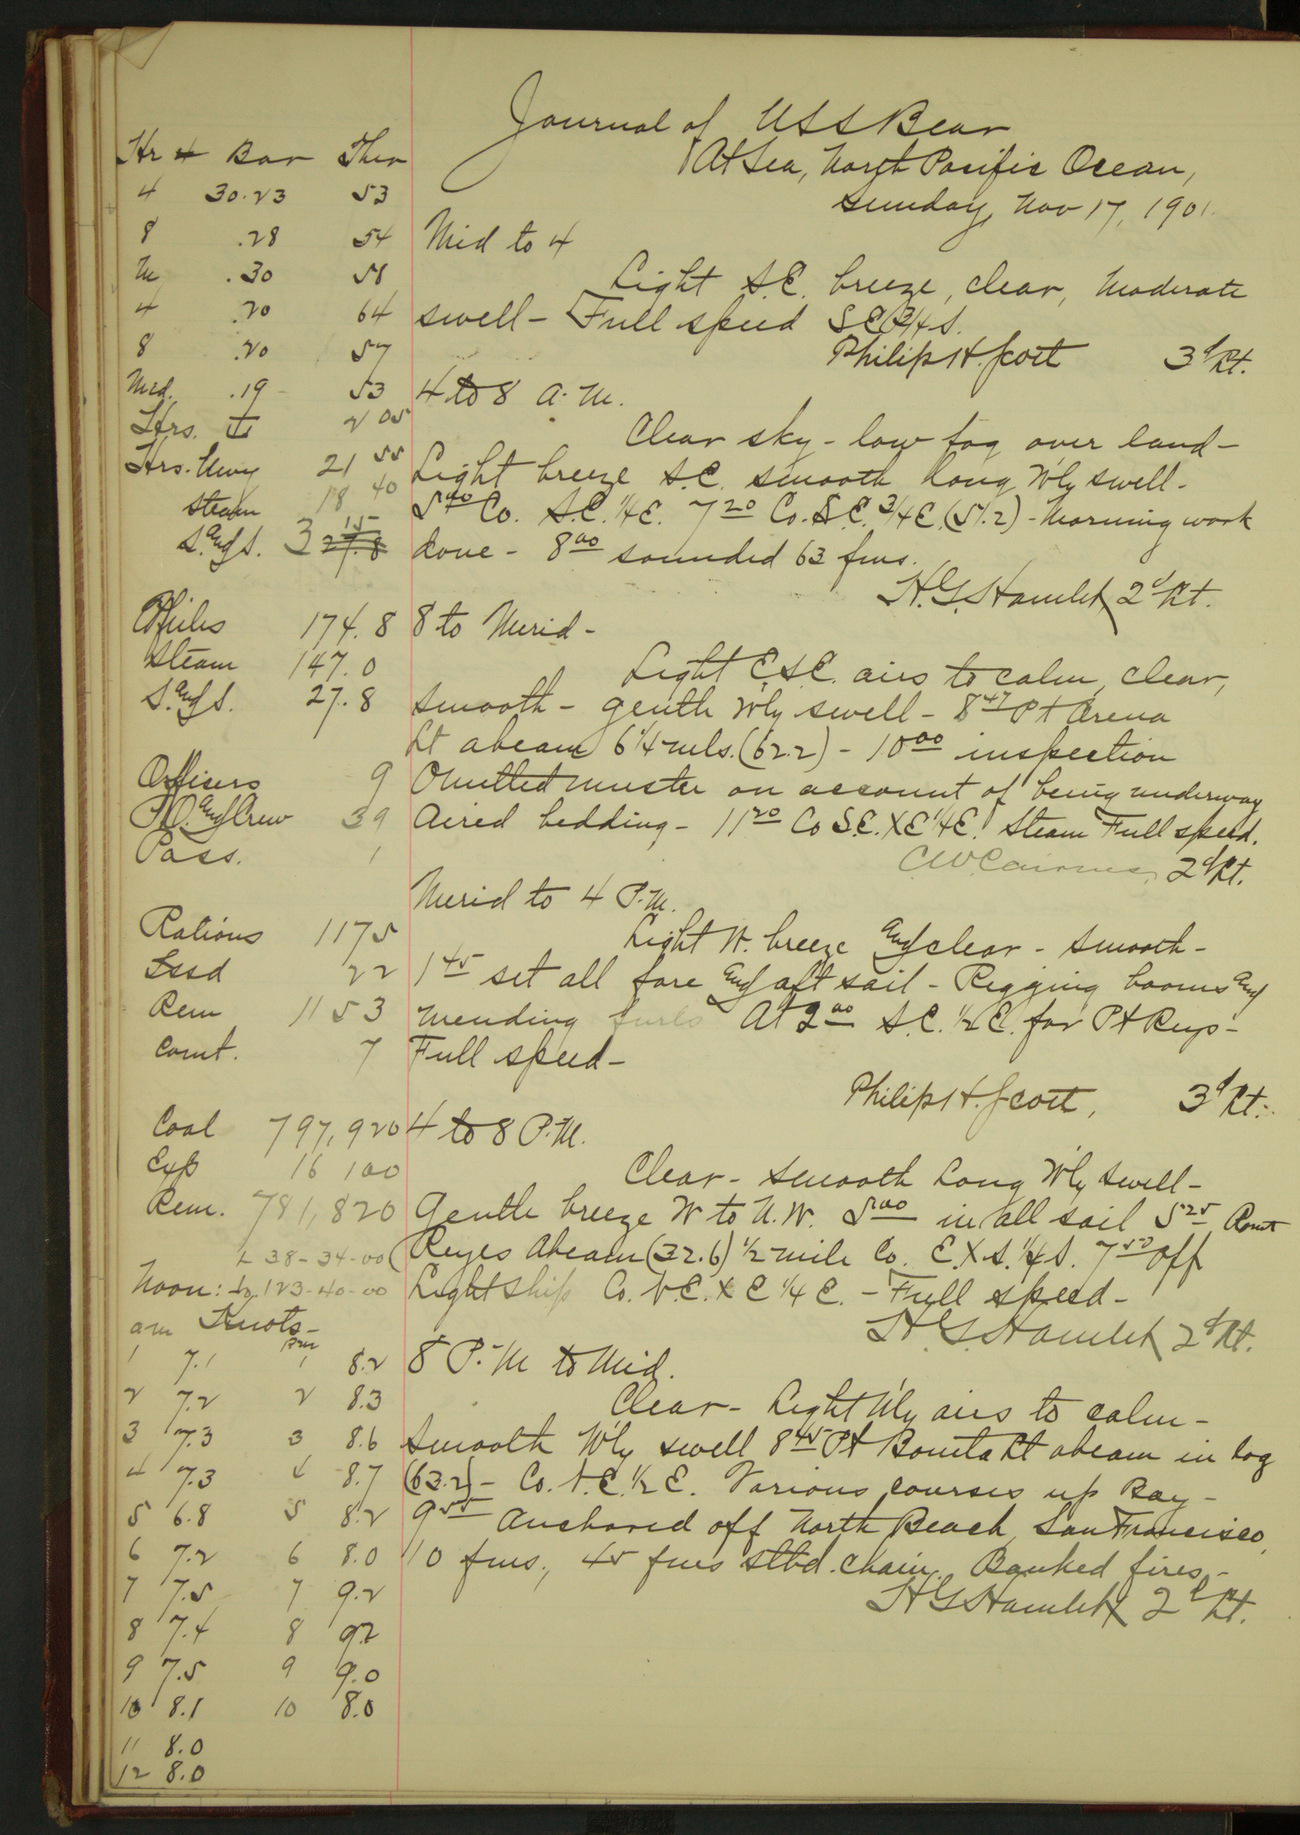 Journal of USS Bear
At Sea, North Pacific Ocean,
Sunday, Nov 17, 1901.
Hr Bar Ther
4 30.23 53
8 .28 54
M .30 58
4 .20 64
8 .20 57
Mid. .19 53
Hrs. 2 05
Hrs. Unwy 21 55
Steam 18 40
S. and S. 3 15
27.8
Miles 174.8
Steam 147.0
S. and S. 27.8
Officers 9
P.O. and Crew 39
Pass. 1
Rations 1175
Issd 22
Rem 1153
Comt. 7
Coal 797,920
Exp 16 100
Rem. 781,820
L 38-34-00
Noon: Lo. 123-40-00
am Knots- pm
1 7.1 1 8.2
2 7.2 2 8.3
3 7.3 3 8.6
4 7.3 4 8.7
5 6.8 5 8.2
6 7.2 6 8.0
7 7.5 7 9.2
8 7.4 8 9.2
9 7.5 9 9.0
10 8.1 10 8.0
11 8.0
12 8.0
Mid to 4
Light S.E. breeze, clear, moderate
swell - Full speed SE 3/4 S.
Philip H. Scott 3d Lt.
4 to 8 A.M.
Clear sky - low fog over land -
Light breeze S.E. smooth long W'ly swell -
5 40 Co. S.E. 1/4 E. 7 20 Co. S.E. 3/4 E. (51.2) - Morning work
done - 8 00 sounded 63 fms.
H.G. Hamlet 2d Lt.
8 to Merid -
Light E.S.E. airs to calm, clear,
smooth - gentle W'ly swell - 8 47 Pt Arena
Lt abeam 6 1/4 mls. (62.2) - 10 00 inspection
Omitted muster on account of being underway
Aired bedding - 11 20 Co S.E. X E 1/4 E. Steam Full speed.
C.W. Cairnes, 2d Lt.
Merid to 4 P.M.
Light W. breeze and clear - smooth -
1 45 set all fore and aft sail - Rigging booms and
mending furls At 2 00 S.E. 1/2 E. for Pt Reys -
Full speed -
Philip H. Scott, 3d Lt.
4 to 8 P.M.
Clear - Smooth Long W'ly Swell -
Gentle breeze W to N.W. 5 00 in all sail 5 25 Point
Reyes Abeam (32.6) 1/2 mile Co. E. X S. 1/4 S. 7 50 Off
Light Ship Co. N.E. X E 1/4 E. - Full speed -
H.G. Hamlet 2d Lt.
8 P.M to Mid.
Clear - Light N'ly airs to calm -
Smooth W'ly swell 8 45 Pt Bonita Lt abeam in log
(63.2) - Co. N.E. 1/2 E. Various courses up Bay -
9 55 Anchored off North Beach, San Francisco,
10 fms., 45 fms stbd. chain. Banked fires -
H G Hamlet 2d Lt.